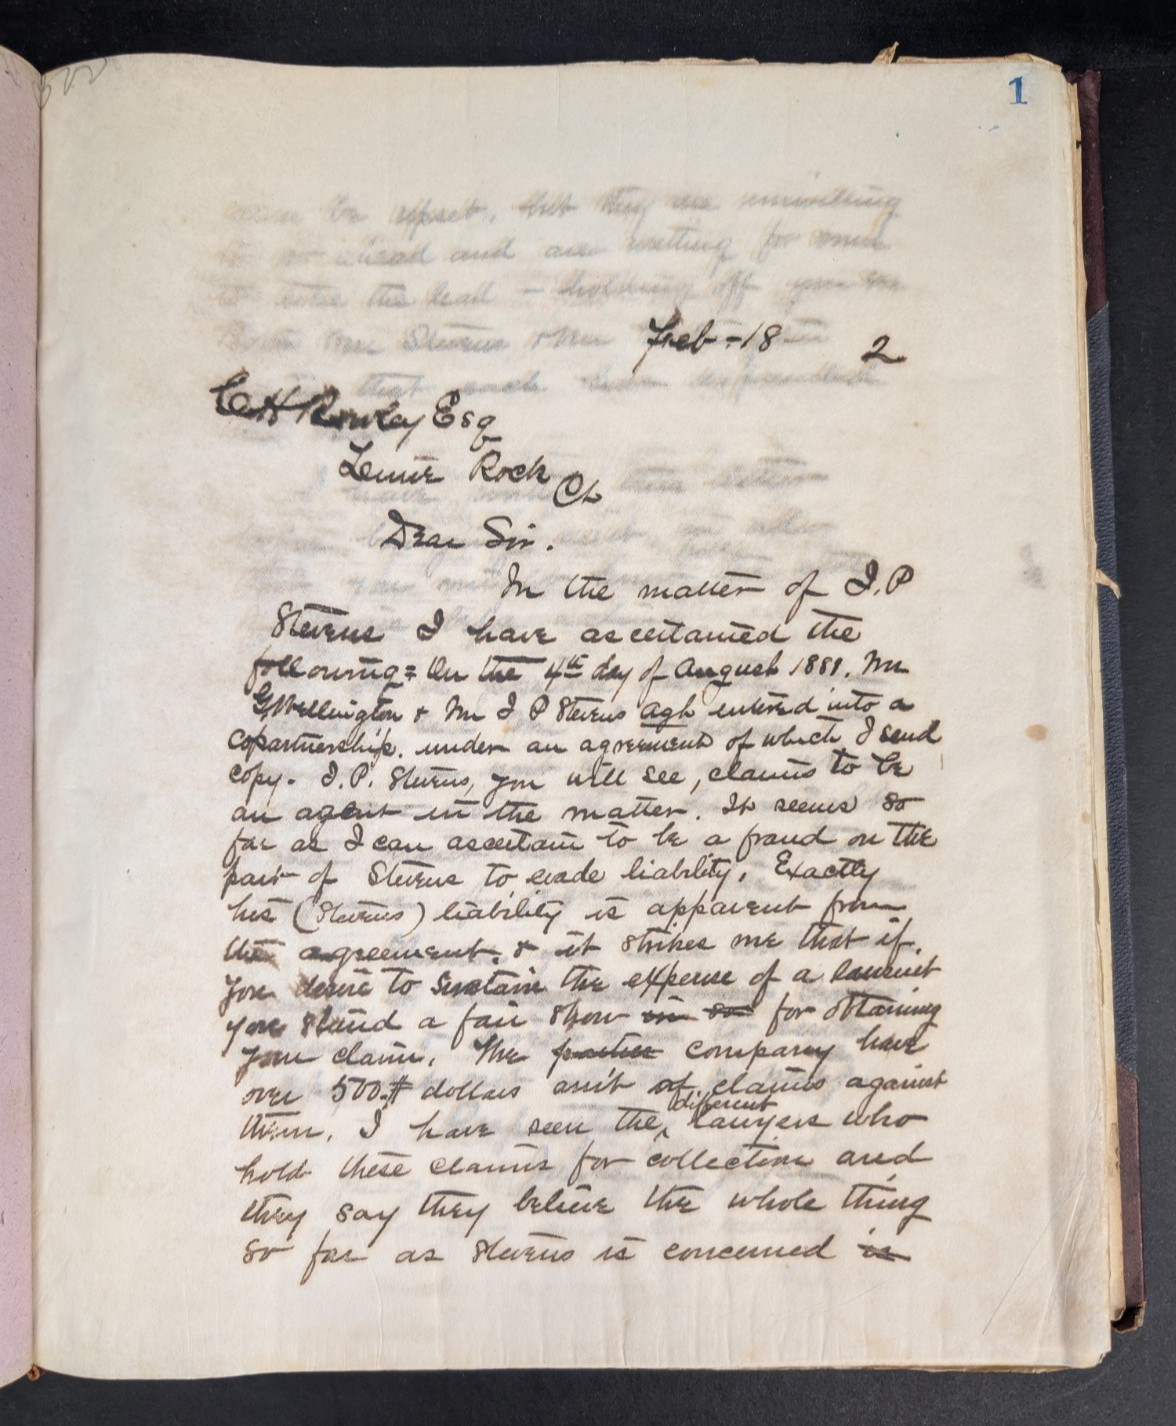 1
Feb-18 2
C H Rowley Esq
Rock
Dear Sir.
In the matter of I. P
Stevens I have ascertained the
following = On the 4th day of August 1881. Mr
G Wellington & Mr I P Stevens agt entered into a
copartnership. under an agreement of which I send
copy. I. P. Stevens, you will see, claims to be
an agent in the matter. It seems so
far as I can ascertain to be a fraud on the
part of Stevens to evade liability. Exactly
his (Stevens) liability is apparent from
the agreement. & it strikes me that if
you desire to sustain the expense of a lawsuit
you stand a fair show in so for obtaining
your claim. The parties company have
over 500.# dollars am't of claims against
them. I have seen the different lawyers who
hold these claims for collection and
they say they believe the whole thing
so far as Stevens is concerned is